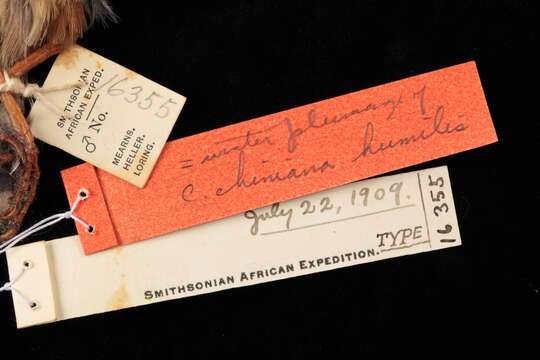 SMITHSONIAN
AFRICAN EXPED.
♂ No. 16355
MEARNS.
HELLER.
LORING.
= winter plumage of
C. chiniana humilis
July 22, 1909.
TYPE
16355
SMITHSONIAN AFRICAN EXPEDITION.